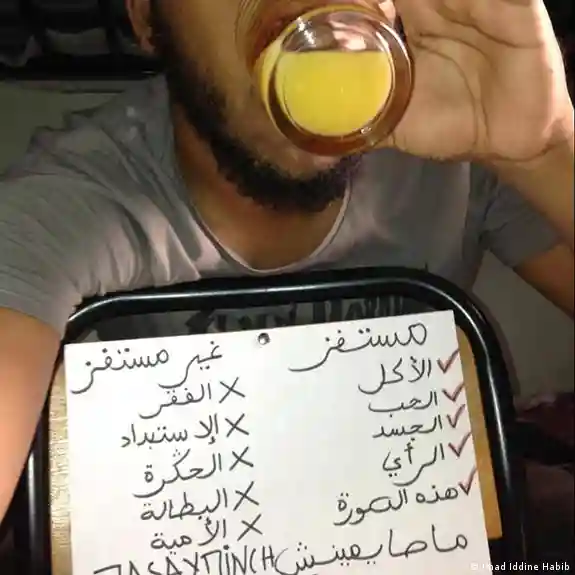 مستفز غير مستفز
✓ الأكل ✗ الفقر
✓ الحب ✗ الإستبداد
✓ الجسد ✗ الحكرة
✓ الرأي ✗ البطالة
✓ هذه الصورة ✗ الأمية
ماصايمينش MASAYMINCH
© Imad Iddine Habib